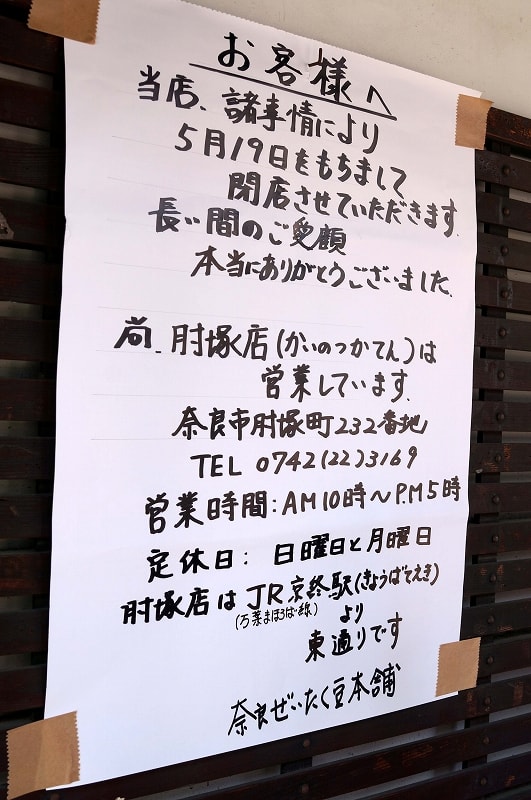 お客様へ
当店、諸事情により
5月19日をもちまして
閉店させていただきます.
長い間のご愛顧
本当にありがとうございました.
尚.肘塚店(かいのつかてん)は
営業しています.
奈良市肘塚町232番地
TEL 0742(22)3169
営業時間:AM10時〜P.M5時
定休日: 日曜日と月曜日
肘塚店はJR京終駅(きょうばてえき)
(万葉まほろば線)
より
東通りです
奈良ぜいたく豆本舗